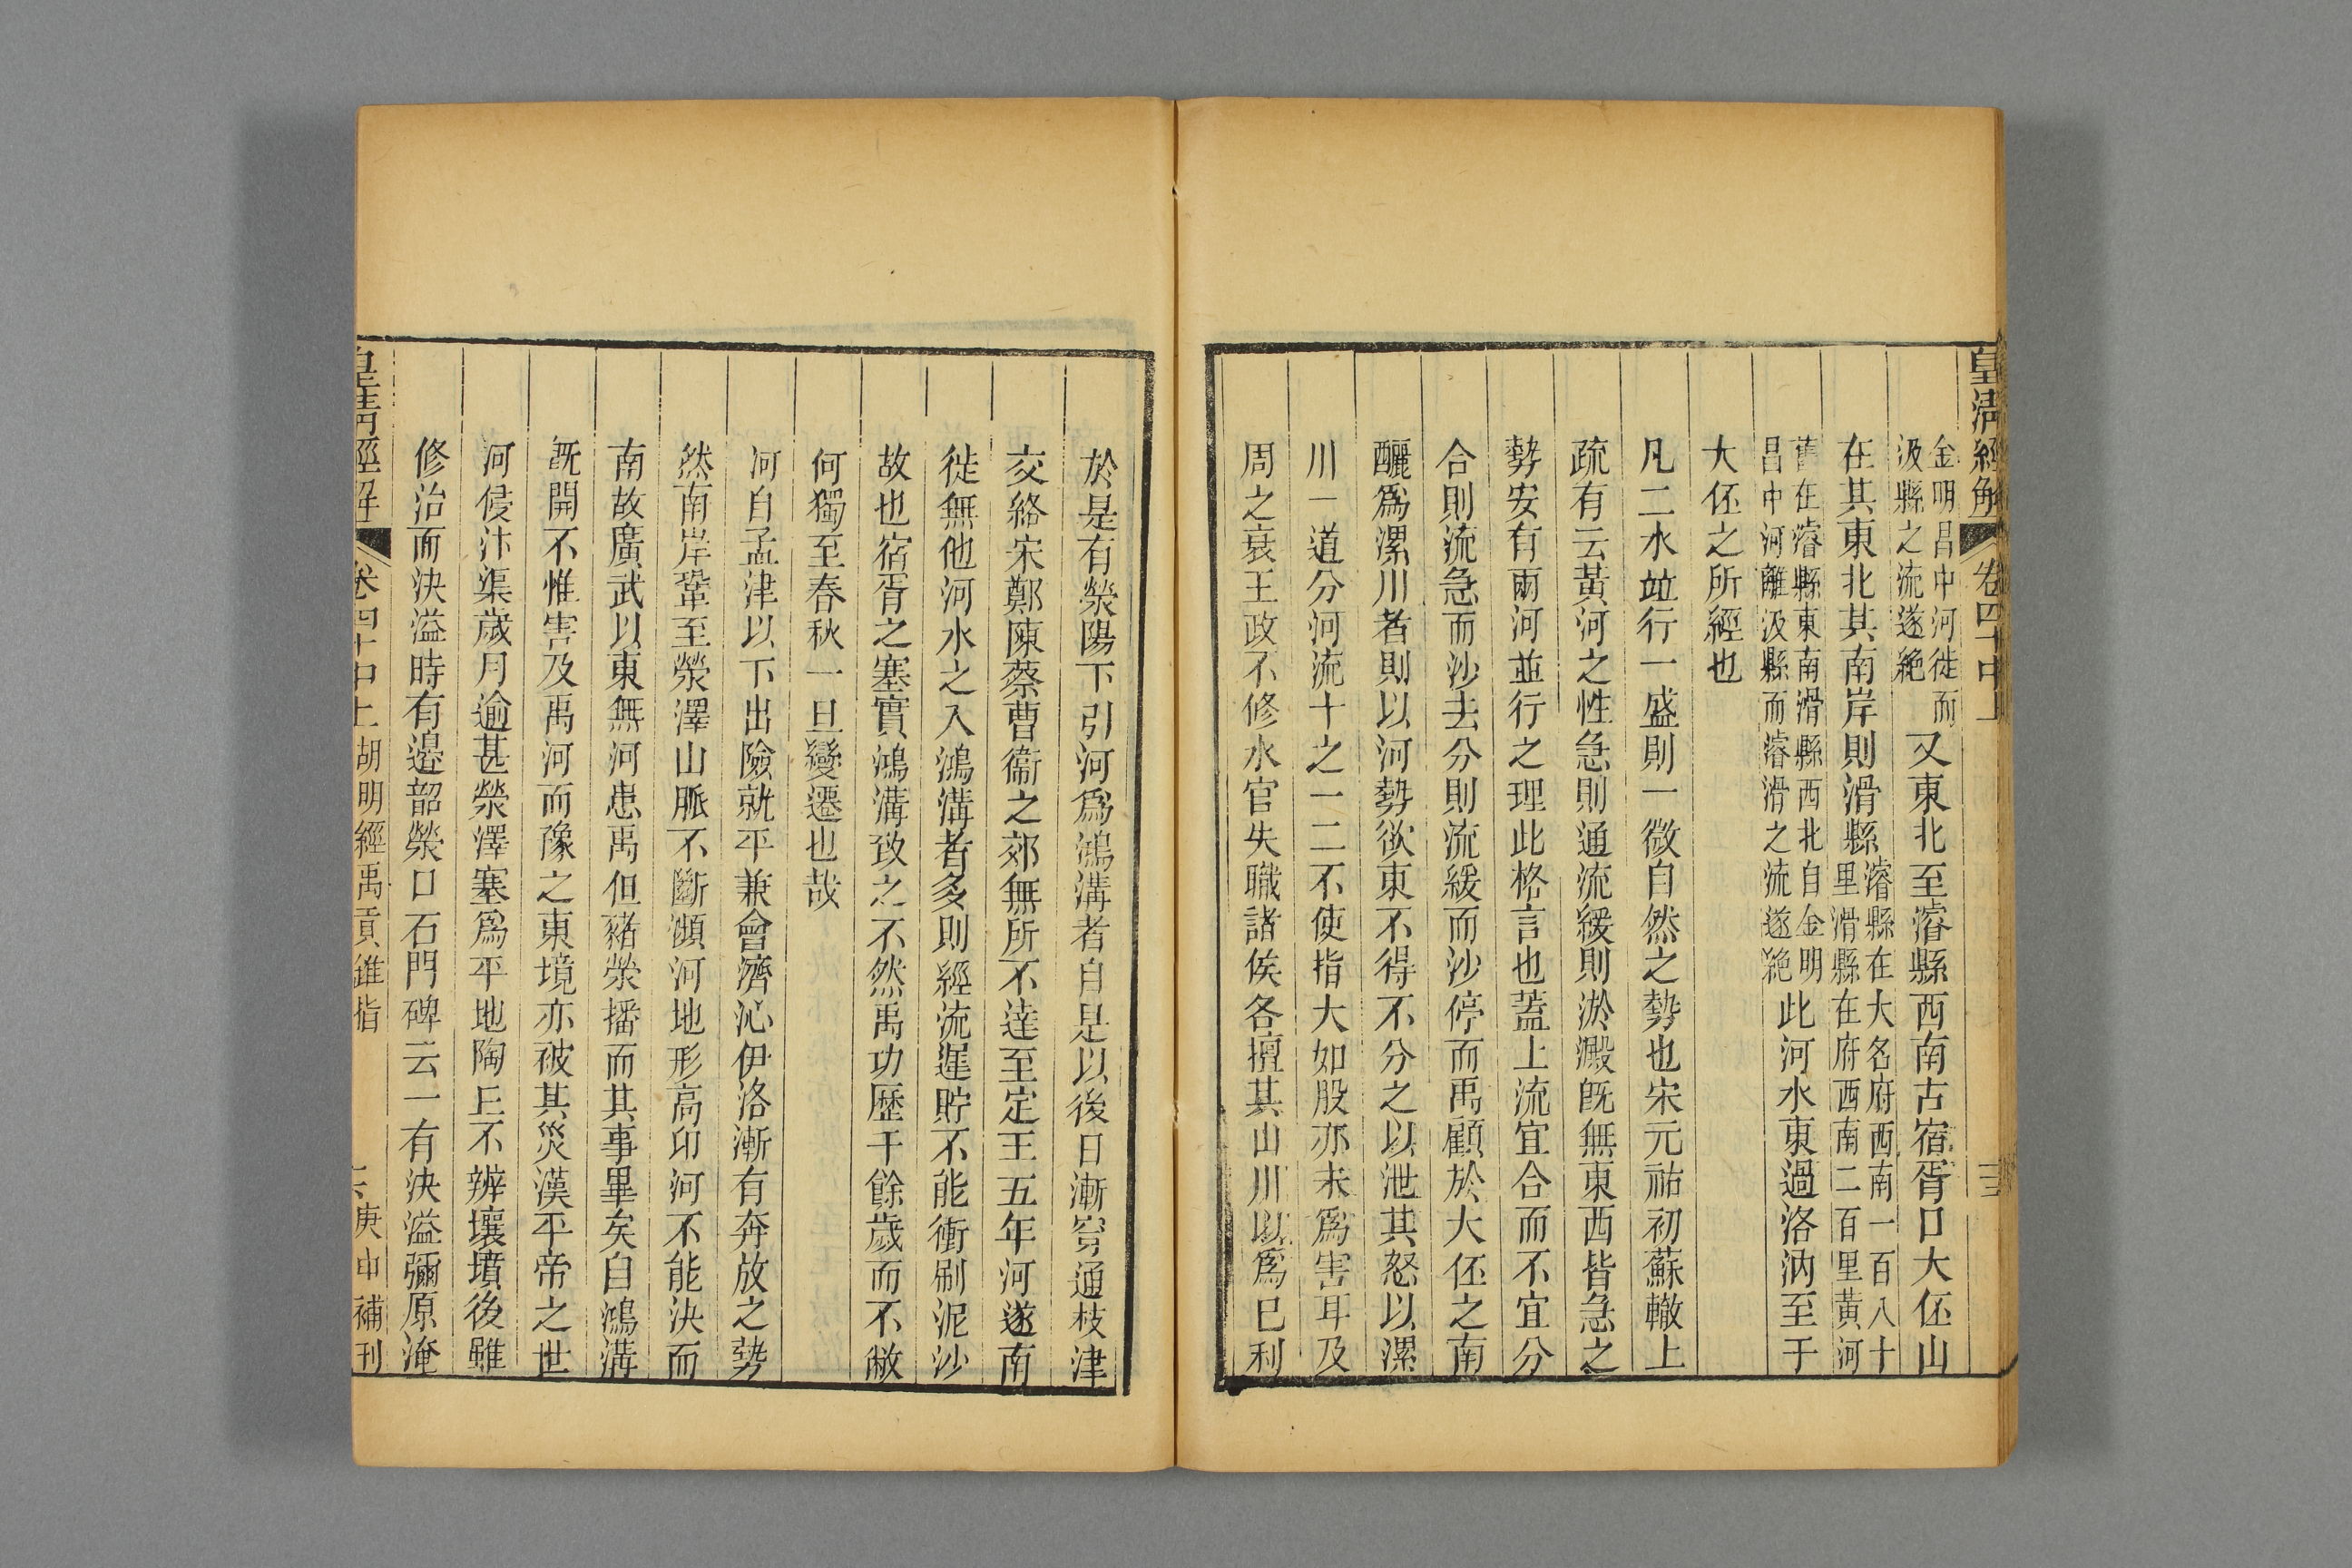 皇清經解 卷四十中上 三
金明昌中河徙而
汲縣之流遂絶
又東北至濬縣西南古宿胥口大伾山
在其東北其南岸則滑縣
濬縣在大名府西南一百八十
里滑縣在府西南二百里黃河
舊在濬縣東南滑縣西北自金明
昌中河離汲縣而濬滑之流遂絶
此河水東過洛汭至于
大伾之所經也
凡二水竝行一盛則一微自然之勢也宋元祐初蘇轍上
疏有云黃河之性急則通流緩則淤澱旣無東西皆急之
勢安有兩河並行之理此格言也蓋上流宜合而不宜分
合則流急而沙去分則流緩而沙停而禹顧於大伾之南
釃爲漯川者則以河勢欲東不得不分之以泄其怒以漯
川一道分河流十之一二不使指大如股亦未爲害耳及
周之衰王政不修水官失職諸侯各擅其山川以爲己利
於是有滎陽下引河爲鴻溝者自是以後日漸穿通枝津
交絡宋鄭陳蔡曹衞之郊無所不達至定王五年河遂南
徙無他河水之入鴻溝者多則經流遲貯不能衝刷泥沙
故也宿胥之塞實鴻溝致之不然禹功歷千餘歲而不敝
何獨至春秋一旦變遷也哉
河自孟津以下出險就平兼會濟沁伊洛漸有奔放之勢
然南岸鞏至滎澤山脈不斷瀕河地形高卬河不能決而
南故廣武以東無河患禹但豬滎播而其事畢矣自鴻溝
旣開不惟害及禹河而豫之東境亦被其災漢平帝之世
河侵汴渠歲月逾甚滎澤塞爲平地陶丘不辨壤墳後雖
修治而決溢時有邉韶滎口石門碑云一有決溢彌原淹
皇清經解 卷四十中上 胡明經禹貢錐指 庚申補刊